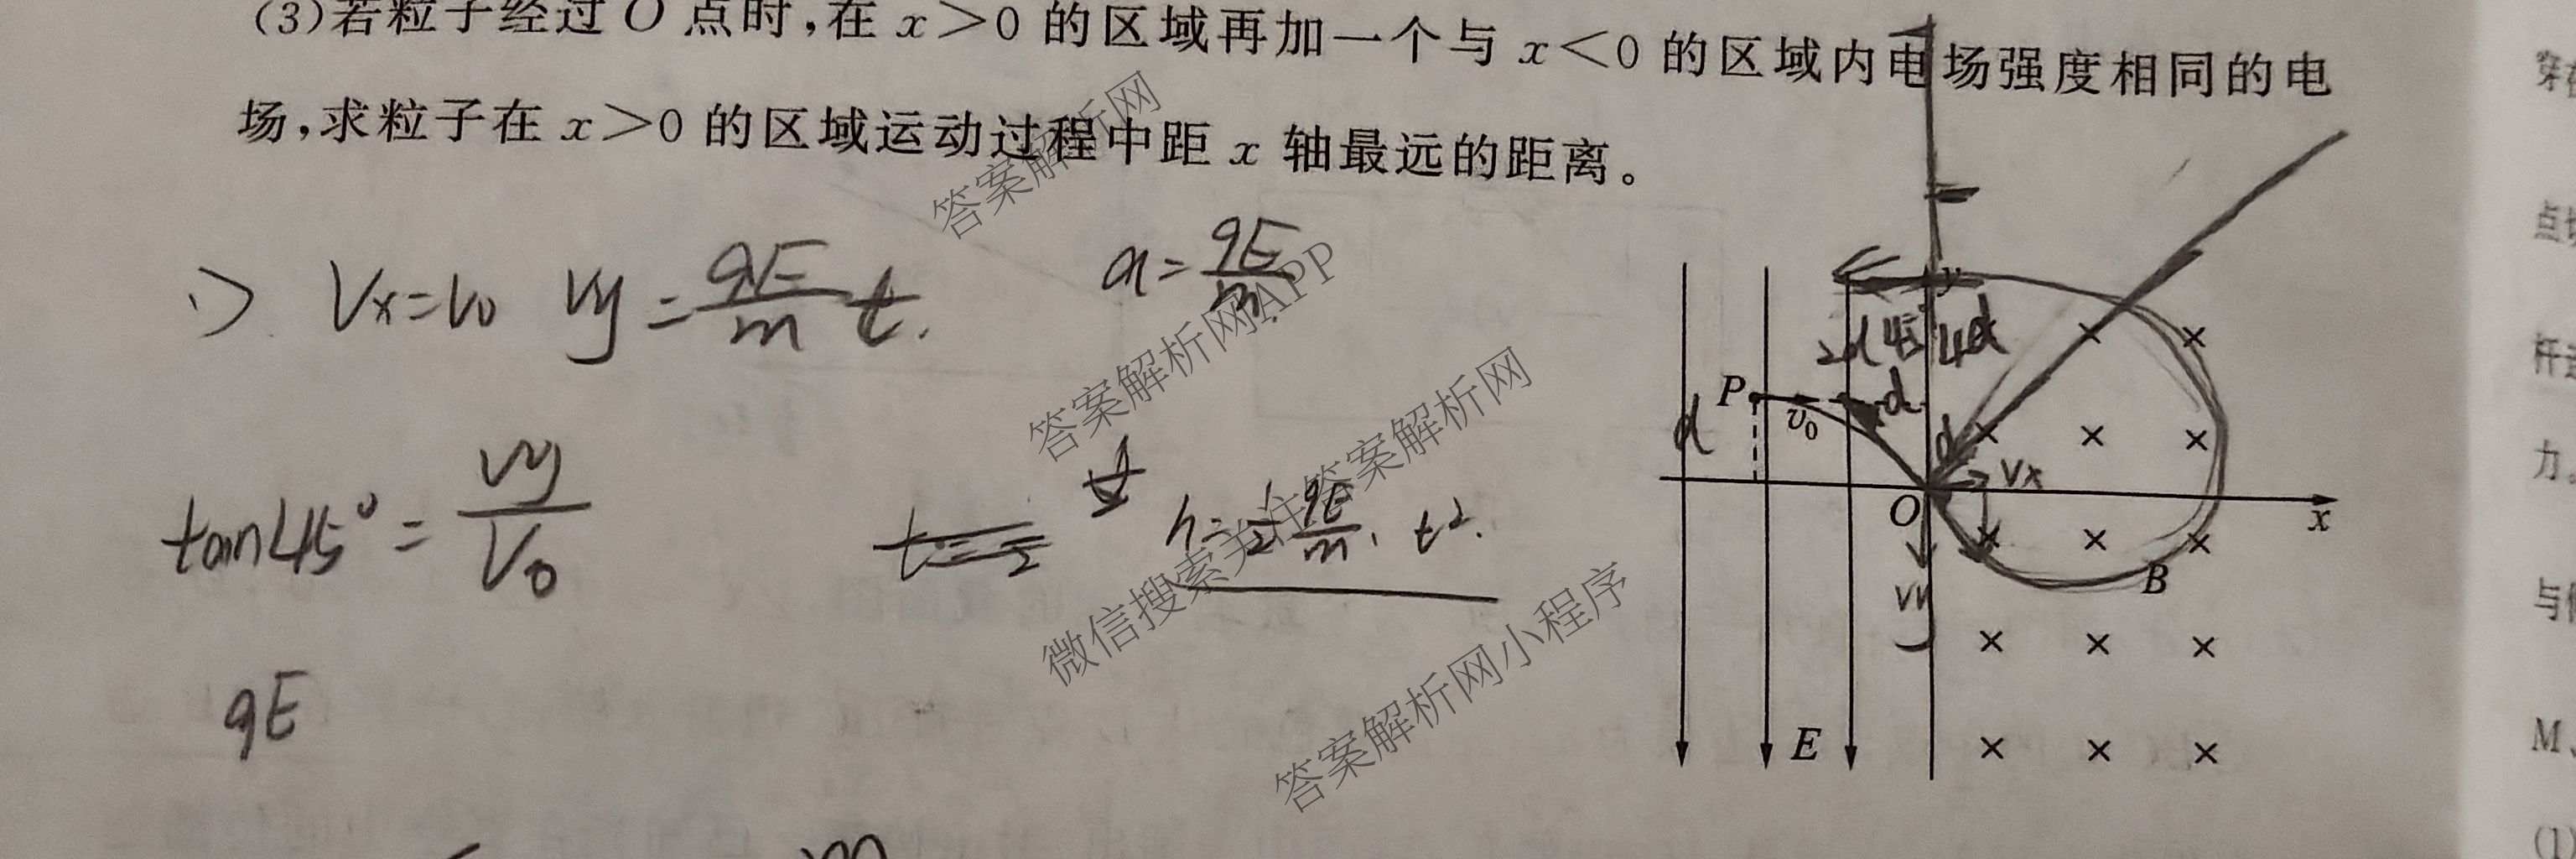 (3)若粒子经过O点时,在x>0的区域再加一个与x<0的区域内电场强度相同的电
场,求粒子在x>0的区域运动过程中距x轴最远的距离。
答案解析网
1) Vx=V0 Vy=qE/m t. a=qE/m.
答案解析网APP
tan45°=Vy/V0
h=1/2 qE/m. t².
微信搜索关注答案解析网
答案解析网小程序
qE
y
2d 45° 4d
P v0 d
d d
O Vx x
Vy B
E
m
穿
点
杆
力。
与
M、
(1)